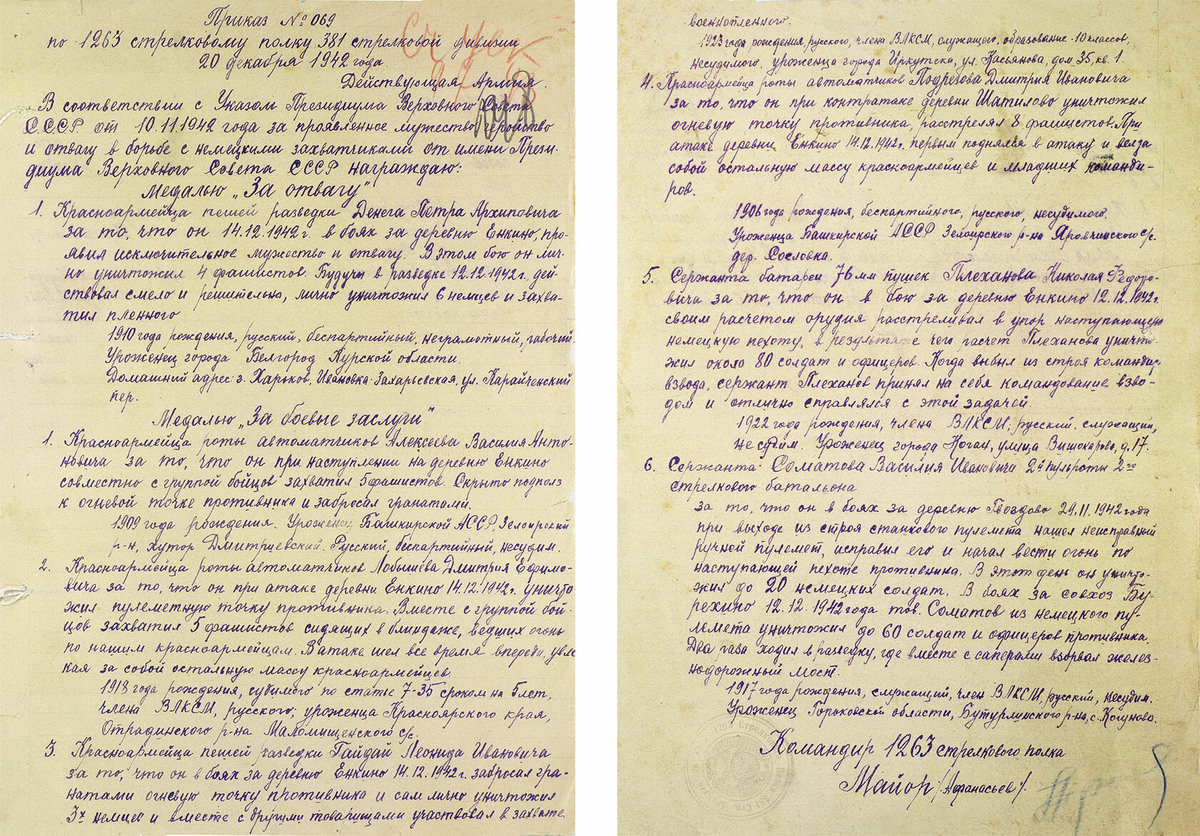 Приказ №069
по 1263 стрелковому полку 381 стрелковой дивизии
20 декабря 1942 года
Действующая Армия.
В соответствии с Указом Президиума Верховного Совета
СССР от 10.11.1942 года за проявленное мужество, геройство
и отвагу в борьбе с немецкими захватчиками от имени Прези-
диума Верховного Совета СССР награждаю:
Медалью „За отвагу"
1. Красноармейца пешей разведки Денега Петра Архиповича
за то, что он 14.12.1942 г. в боях за деревню Енкино, про-
явил исключительное мужество и отвагу. В этом бою он лич-
но уничтожил 4 фашистов Будучи в разведке 12.12.1942 г. дей-
ствовал смело и решительно, лично уничтожил 6 немцев и захва-
тил пленного
1910 года рождения, русский, беспартийный, неграмотный, рабочий.
Уроженец города Белгород Курской области.
Домашний адрес г. Харьков, Ивановка-Захарьевская, ул. Карайченский
пер.
Медалью „За боевые заслуги"
1. Красноармейца роты автоматчиков Алексеева Василия Анто-
новича за то, что он при наступлении на деревню Енкино
совместно с группой бойцов захватил 5 фашистов. Скрыто подполз
к огневой точке противника и забросал гранатами.
1909 года рождения. Уроженец Башкирской АССР Зелоирский
р-н, хутор Дмитриевский. Русский, беспартийный, несудим.
2. Красноармейца роты автоматчиков Лобышева Дмитрия Ефимо-
вича за то, что он при атаке деревни Енкино 14.12.1942 г. уничто-
жил пулеметную точку противника. Вместе с группой бой-
цов захватил 5 фашистов сидящих в блиндаже, ведших огонь
по нашим красноармейцам. В атаке шел все время впереди, увле-
кая за собой остальную массу красноармейцев.
1918 года рождения, судимого по статье 7-35 сроком на 5 лет,
члена ВЛКСМ, русского, уроженца Красноярского края,
Отрадинского р-на Маломищенского с/с.
3. Красноармейца пешей разведки Гайдай Леонида Ивановича
за то, что он в боях за деревню Енкино 14.12.1942 г. забросал гра-
натами огневую точку противника и сам лично уничтожил
3х немцев и вместе с другими товарищами участвовал в захвате
военнопленного.
1923 года рождения, русского, члена ВЛКСМ, служащего, образование-10 классов,
несудимого, уроженца города Иркутска, ул. Касьянова, дом 35, кв 1.
4. Красноармейца роты автоматчиков Подрезова Дмитрия Ивановича
за то, что он при контратаке деревни Шатилово уничтожил
огневую точку противника, расстрелял 8 фашистов. При
атаке деревни Енкино 14.12.1942 г. первым поднялся в атаку и вел за
собой остальную массу красноармейцев и младших команди-
ров.
1906 года рождения, беспартийного, русского, несудимого.
Уроженца Башкирской АССР Зелоирского р-на Яровчинского с/с.
дер. Сословка.
5. Сержанта батареи 76 мм пушек Плеханова Николая Федоро-
вича за то, что он в бою за деревню Енкино 12.12.1942 г.
своим расчетом орудия расстреливал в упор наступающую
немецкую пехоту, в результате чего расчет Плеханова уничто-
жил около 80 солдат и офицеров. Когда выбыл из строя командир
взвода, сержант Плеханов принял на себя командование взво-
дом и отлично справлялся с этой задачей.
1922 года рождения, члена ВЛКСМ, русский, служащий,
не судим. Уроженец города Коган, улица Вышохарово, д.17.
6. Сержанта Соматова Василия Ивановича 2й пульроты 2го
стрелкового батальона
за то, что он в боях за деревню Гвоздово 29.11.1942 года
при выходе из строя станкового пулемета нашел неисправный
ручной пулемет, исправил его и начал вести огонь по
наступающей пехоте противника. В этот день он уничто-
жил до 20 немецких солдат. В боях за совхоз Бу-
рехино 12.12.1942 года тов. Соматов из немецкого пу-
лемета уничтожил до 60 солдат и офицеров противника.
Два раза ходил в разведку, где вместе с саперами взорвал желез-
нодорожный мост.
1917 года рождения, служащий, член ВЛКСМ, русский, несудим.
Уроженец Горьковской области, Бутурлинского р-на, с. Кочунова.
Командир 1263 стрелкового полка
Майор /Афанасьев/.